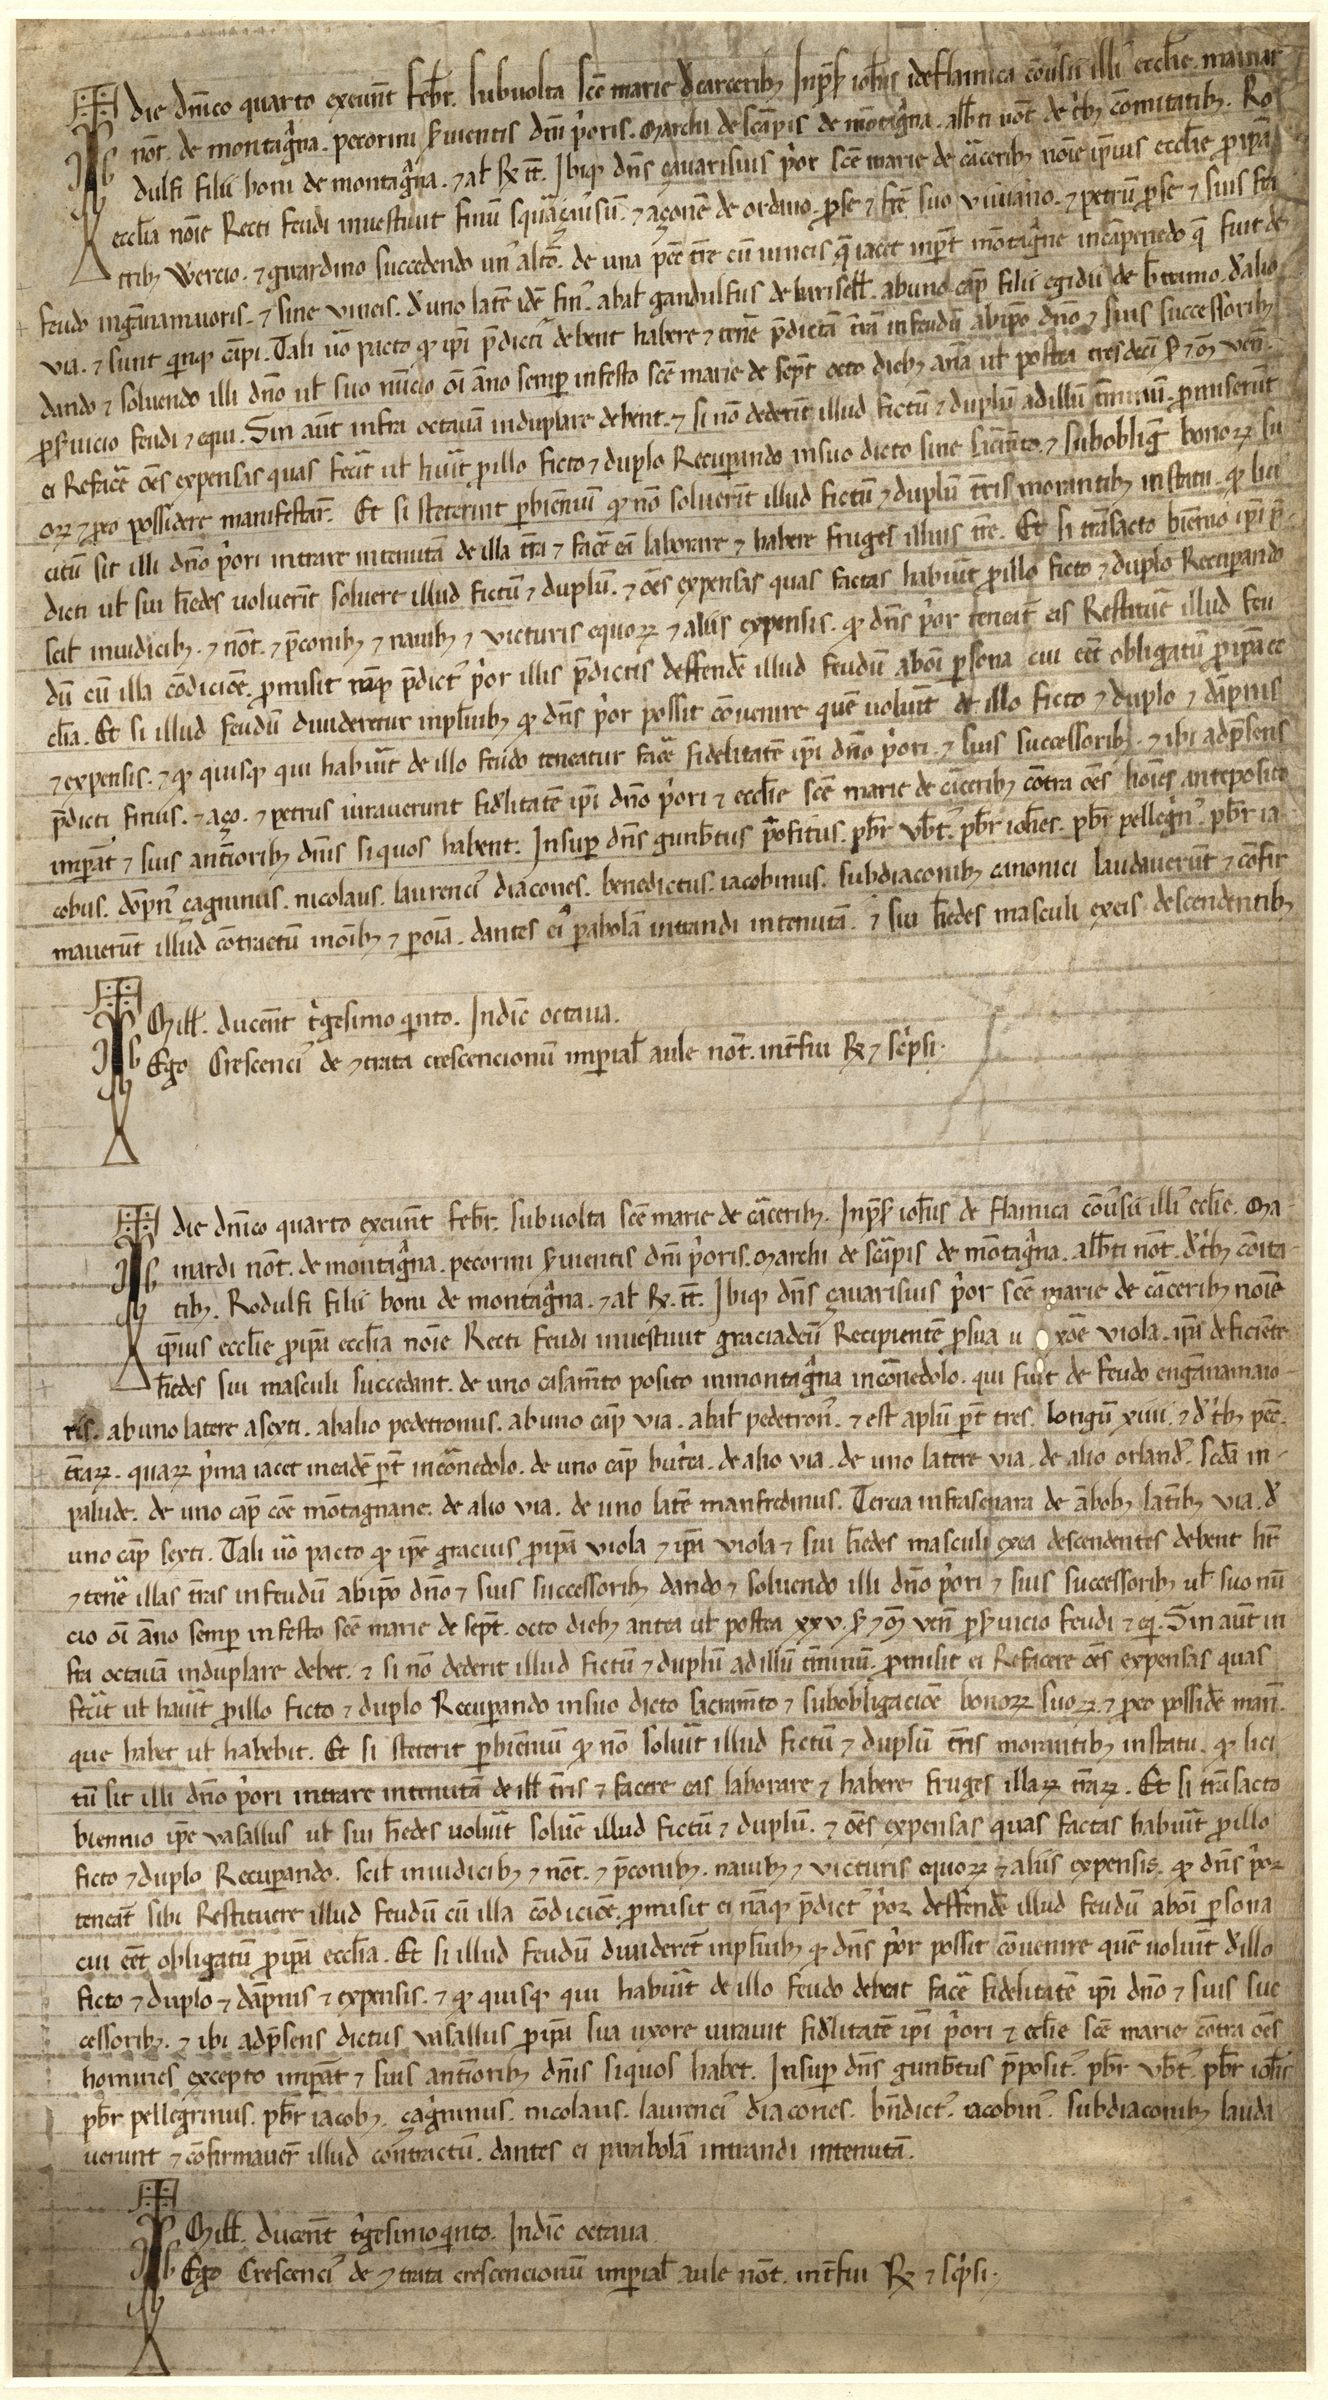 die dn̄ico quarto exeunt febr̄. sub uolta sce marie de carceribꝫ. In p̄s̄ ioh̄is de flamica cōuersi illiꝰ ecclie. mainar
not̄. de montagn̄a. pecorini ẜuientis dn̄i p̄oris. Marchi de scāpis de mōtagn̄a. alb̄ti not̄ de t̄bꝫ comitatibꝫ. Ro
dulfi filii boni de montagn̄a. ⁊ al̄ R̄ t̄t̄. Ibiqꝫ dn̄s çauarisius p̄or sce marie de cārceribꝫ noīe ip̄ius ecclie ꝓ ip̄a
ecclīa noīe Recti feudi inuestiuit finū ⁊ açonē de ordano ꝓ se ⁊ fr̄e suo uiuiano. ⁊ petrū ꝓ se ⁊ suis fra
tribꝫ Wercio. ⁊ guardino succedendo unꝰ altīo. de una pecīe tr̄e cū uineis q̄ iacet in p̄t mōtagn̄e in cāpenedo q̄ fuit de
feudo inganamaioris. ⁊ sine uineis. d̄ uno latē idē finꝰ. ab al̄ gandulfus de . ab uno cap̄ filii egidii de . d̄ alio
uia. ⁊ sunt qinqꝫ cāpi. Tali u̅o pacto qđ ip̄i p̄dicti debent habere ⁊ tenē p̄dictā tr̄ā in feudū ab ip̄o dn̄o ⁊ suis successoribꝫ
dando ⁊ soluendo illi dn̄o ul̄ suo nūcio oī āno semꝑ in festo sce marie de sept̄ octo diebꝫ antea ul̄ postea tresdecī ẜ ⁊ ven̄.
ꝓ ẜuicio feudi ⁊ equi. Sin aut̄ infra octauā in duplare debent. ⁊ si nō dederīt illud fictū ⁊ duplū ad illū t̄minū. promiserūt
ei Reface̅ oēs expensas quas fecīt ul̄ huīt ꝓ illo ficto ⁊ duplo Recuperando in suo dicto sine sacram̄to. ⁊ sub obligē bonoꝝ su
oꝝ ⁊ ꝓ eo possidere manifestar̄. Et si steterint ꝑ bienniū qđ nō soluerīt illud fictū ⁊ duplū tr̄is morantibꝫ in statu. qđ lici
citū sit illi dn̄o p̄ori intrare in tenutā de illa tr̄a ⁊ face̅ eā laborare ⁊ habere fruges illius tr̄e. Et si trāsacto biennio ip̄i p̄
dicti ul̄ sui h̄edes uoluerīt soluere illud fictū ⁊ duplū. ⁊ oēs expensas quas factas habuīt ꝓ illo ficto ⁊ duplo Recuperando
scil̄ in iudicibꝫ. ⁊ not̄. ⁊ p̄conibꝫ ⁊ nauibꝫ ⁊ uicturis equoꝝ ⁊ aliis expensis. qđ dn̄s p̄or teneat̄ eis Restituē illud feu
dū cū illa cōdicioē. promisit nāqꝫ p̄dictꝰ p̄or illis p̄dictis deffendē illud feudū ab oī persona cui eēt obligatū ꝓ ip̄a ec
clīa. Et si illud feudū diuideretur in pl̄uibꝫ qđ dn̄s p̄or possit cōuenire quē uoluīt de illo ficto ⁊ duplo ⁊ dāpnis
⁊ expensis. ⁊ qđ quisqꝫ qui habuīt de illo feudo teneatur face̅ fidelitatē ip̄i dn̄o p̄ori. ⁊ suis successoribꝫ. ⁊ ibi ad p̄sens
p̄dicti finus. ⁊ aço. ⁊ petrus iurauerunt fid̄litatē ip̄i dn̄o p̄ori ⁊ ecclie sce marie de cārceribꝫ cōntra oēs hoīes anteposito
imperat̄ ⁊ suis anterioribꝫ dn̄is si quos habent. Insuꝑ dn̄s gunb̄tus p̄positus. pb̄r vb̄tꝰ. pb̄r ioh̄es. pb̄r pellegrīnꝰ. pb̄r ia
cobus. dōpn̄ꝰ çagninus. nicolaus. laurenciꝰ diacones. benedictus. iacobinus. subdiaconibꝫ canonici laudauerūt ⁊ cōfir
mauerūt illud cōtractū in oībꝫ ⁊ ꝑ oīa. dantes eiꝰ parabolā intrandi in tenutā. ⁊ sui h̄edes masculi ex eis descendentibꝫ
Mill̄. ducent̄ t̄gesimo qinto. Indic̄ octaua.
Ego Crescenciꝰ de ⁊trata crescencionū imperial̄ aule not̄. int̄fui R̄ ⁊ sc̄psi.
die dn̄ico quarto exeunt febr̄. sub uolta sce marie de cārceribꝫ. In p̄s̄ ioh̄is de flamica cōuersi illiꝰ ecclie. Ma
inardi not̄. de montagn̄a. pecorini ẜuientis dn̄i p̄oris. Marchi de scāpis de mōtagn̄a. alb̄ti not̄. d̄ t̄bꝫ comita
tibꝫ. Rodulfi filii boni de montagn̄a. ⁊ al̄ R̄. t̄t̄. Ibiqꝫ dn̄s çauarisius p̄or sce marie de cārceribꝫ noīe
ip̄ius ecclie ꝓ ip̄a ecclīa noīe Recti feudi inuestiuit graciadeū Recipientē ꝓ sua u xoē viola. ip̄a deficiente
h̄edes sui masculi succedant. de uno casam̄to posito in montagn̄a in cōnedolo. qui fuit de feudo enganamaio
ris. ab uno latere a sexti. ab alio pedetronus. ab uno cap̄ via. ab al̄ pedetronꝰ. ⁊ est aplū p̄t tres. longū xiiii. ⁊ d̄ t̄bꝫ pecē.
tr̄arꝝ. quaꝝ p̄ima iacet in eadē p̄t in cōnedolo. de uno cap̄ . de alio via. de uno latere via. de alio orlandꝰ. scd̄a in
palude. de uno cap̄ cōe mōtagnane. de alio via. de uno latē manfredinus. Tercia in frasenara de ābobꝫ latībꝫ via. d̄
uno cap̄ sexti. Tali u̅o pacto qđ ip̄e gracius ꝓ ip̄a viola ⁊ ip̄a viola ⁊ sui h̄edes masculi ex ea descendentes debent h̄re
⁊ tenē illas tr̄as in feudū ab ip̄o dn̄o ⁊ suis successoribꝫ dando ⁊ soluendo illi dn̄o p̄ori ⁊ suis successoribꝫ ul̄ suo nū
cio oī āno semꝑ in festo sce marie de sept̄. octo diebꝫ antea ul̄ postea xxv. ẜ ⁊ ven̄ ꝓ ẜuicio feudi ⁊ eq̄i. Sin aut̄ in
fra octauā in duplare debet. ⁊ si nō dederit illud fictū ⁊ duplū ad illū t̄minū. promisit ei Reficere oēs expensas quas
fecīt ul̄ hauīt ꝓ illo ficto ⁊ duplo Recuperando in suo dicto sacram̄to ⁊ sub obligacioē bonoꝝ suoꝝ. ⁊ ꝓ eo possidē man̄.
que habet ul̄ habebit. Et si steterit ꝑ bienniū qđ nō soluīt illud fictū ⁊ duplū tr̄is morantibꝫ in statu. qđ lici
tū sit illi dn̄o p̄ori intrare in tenutā de ill̄ tr̄is ⁊ facere eas laborare ⁊ habere fruges illaꝝ tr̄aꝝ. Et si trāsacto
biennio ip̄e vasallus ul̄ sui h̄edes uoluīt soluē illud fictū ⁊ duplū. ⁊ oēs expensas quas factas habuīt ꝓ illo
ficto ⁊ duplo Recuperando. scil̄ in iudicibꝫ ⁊ not̄. ⁊ p̄conibꝫ. nauibꝫ ⁊ uicturis equoꝝ ⁊ aliis expensis. qđ dn̄s p̄or
teneat̄ sibi Restituere illud feudū cū illa cōdicioē. promisit ei nāqꝫ p̄dictꝰ p̄or deffendē illud feudū ab oī persona
cui eēt obligatū ꝓ ip̄a ecclīa. Et si illud feudū dīuideret̄ in pl̄uibꝫ qđ dn̄s p̄or possit cōuenire quē uoluīt d̄ illo
ficto ⁊ duplo ⁊ dāpnis ⁊ expensis. ⁊ qđ quisqꝫ qui habuīt de illo feudo debeat face̅ fidelitatē ip̄i dn̄o ⁊ suis suc
cessoribꝫ. ⁊ ibi ad p̄sens dictus vasallus ꝓ ip̄a sua uxore iurauit fid̄litatē ip̄i p̄ori ⁊ ecclie sce marie cōtra oēs
homines excepto imperat̄ ⁊ suis anterioribꝫ dn̄is si quos habet. Insuꝑ dn̄s gunb̄tus p̄positꝰ. pb̄r vb̄tꝰ. pb̄r ioh̄is
pb̄r pellegrinus. pb̄r iacobꝫ. çagninus. nicolaus. laurenciꝰ diacones. bn̄dictꝰ. iacobinꝰ. subdiaconibꝫ lauda
uerunt ⁊ cōfirmauer̄ illud contractū. dantes ei parabolā intrandi in tenutā.
Mill̄. ducent̄ t̄gesimo qinto. Indic̄ octaua
Ego Crescenciꝰ de ⁊trata crescencionū imperial̄ aule not̄. int̄fui R̄ ⁊ sc̄psi.